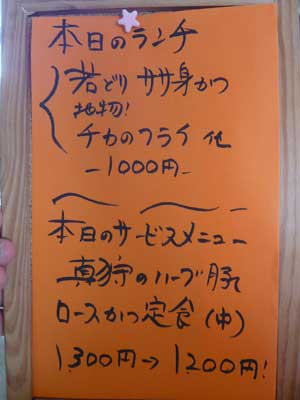 本日のランチ
若どり ササ身かつ
地物!
チカのフライ 他
-1000円-
本日のサービスメニュー
真狩のハーブ豚
ロースかつ定食(中)
1300円→1200円!